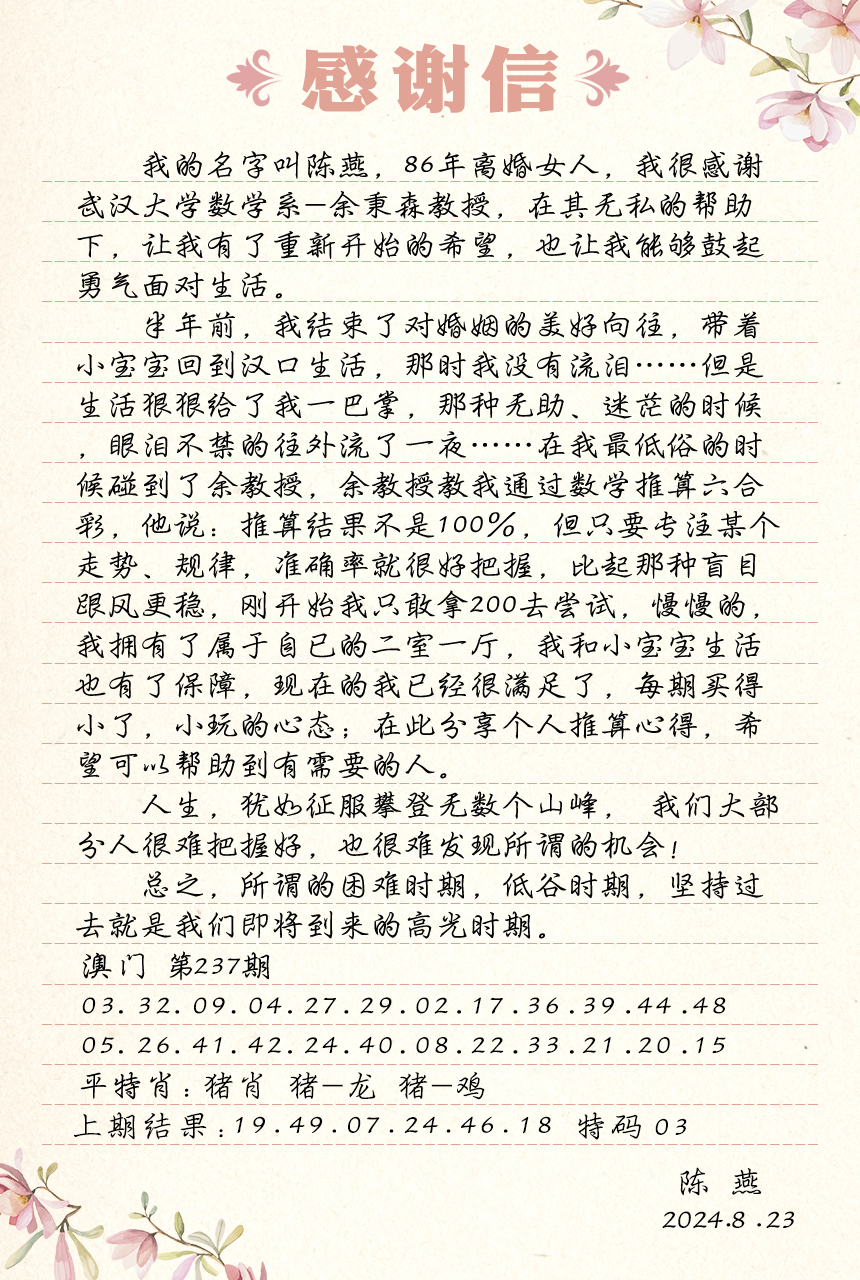 感谢信
我的名字叫陈燕，86年离婚女人，我很感谢
武汉大学数学系—余秉森教授，在其无私的帮助
下，让我有了重新开始的希望，也让我能够鼓起
勇气面对生活。
半年前，我结束了对婚姻的美好向往，带着
小宝宝回到汉口生活，那时我没有流泪……但是
生活狠狠给了我一巴掌，那种无助、迷茫的时候
，眼泪不禁的往外流了一夜……在我最低俗的时
候碰到了余教授，余教授教我通过数学推算六合
彩，他说：推算结果不是100%，但只要专注某个
走势、规律，准确率就很好把握，比起那种盲目
跟风更稳，刚开始我只敢拿200去尝试，慢慢的，
我拥有了属于自已的二室一厅，我和小宝宝生活
也有了保障，现在的我已经很满足了，每期买得
小了，小玩的心态；在此分享个人推算心得，希
望可以帮助到有需要的人。
人生，犹如征服攀登无数个山峰， 我们大部
分人很难把握好，也很难发现所谓的机会！
总之，所谓的困难时期，低谷时期，坚持过
去就是我们即将到来的高光时期。
澳门 第237期
03.32.09.04.27.29.02.17.36.39.44.48
05.26.41.42.24.40.08.22.33.21.20.15
平特肖：猪肖 猪—龙 猪—鸡
上期结果：19.49.07.24.46.18 特码 03
陈 燕
2024.8.23